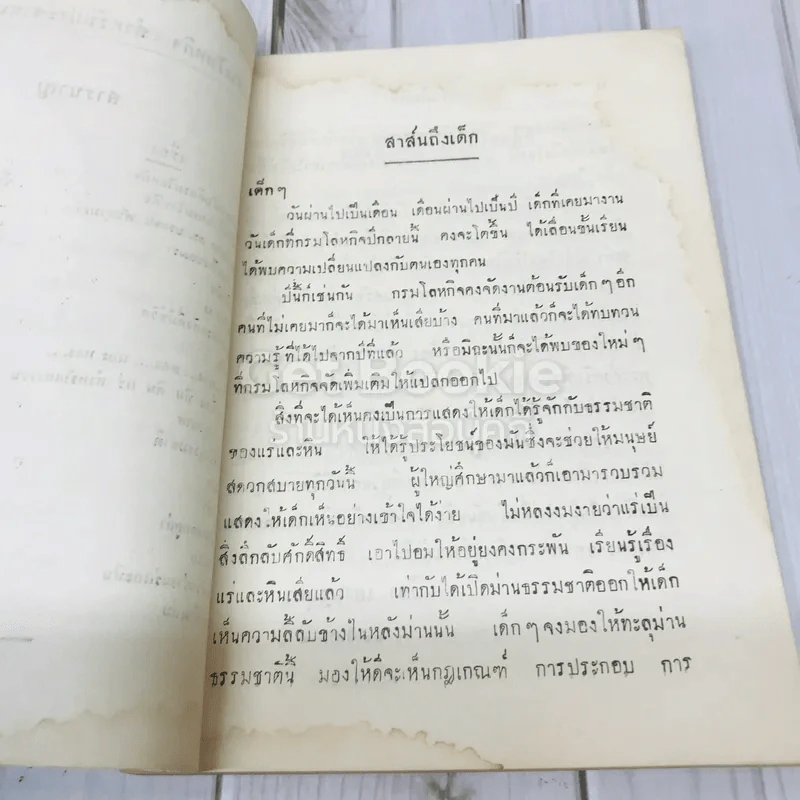 สารบาญ
สาส์นถึงเด็ก
เด็กๆ
วันผ่านไปเป็นเดือน เดือนผ่านไปเป็นปี เด็กที่เคยมางาน
วันเด็กที่กรมโลหกิจปีกลายนี้ คงจะโตขึ้น ได้เลื่อนชั้นเรียน
ได้พบความเปลี่ยนแปลงกับตนเองทุกคน
ปีนี้ก็เช่นกัน กรมโลหกิจคงจัดงานต้อนรับเด็กๆอีก
คนที่ไม่เคยมาก็จะได้มาเห็นเสียบ้าง คนที่มาแล้วก็จะได้ทบทวน
ความรู้ที่ได้ไปจากปีที่แล้ว หรือมิฉะนั้นก็จะได้พบของใหม่ๆ
ที่กรมโลหกิจจัดเพิ่มเติมให้แปลกออกไป
สิ่งที่จะได้เห็นคงเป็นการแสดงให้เด็กได้รู้จักกับธรรมชาติ
ของแร่และหิน ให้ได้รู้ประโยชน์ของมันซึ่งจะช่วยให้มนุษย์
สดวกสบายทุกวันนี้ ผู้ใหญ่ศึกษามาแล้วก็เอามารวบรวม
แสดงให้เด็กเห็นอย่างเข้าใจได้ง่าย ไม่หลงงมงายว่าแร่เป็น
สิ่งลึกลับศักดิ์สิทธิ์ เอาไปอมให้อยู่ยงคงกระพัน เรียนรู้เรื่อง
แร่และหินเสียแล้ว เท่ากับได้เปิดม่านธรรมชาติออกให้เด็ก
เห็นความลี้ลับข้างในหลังม่านนั้น เด็กๆจงมองให้ทะลุม่าน
ธรรมชาตินี้ มองให้ดีจะเห็นกฎเกณฑ์ การประกอบ การ